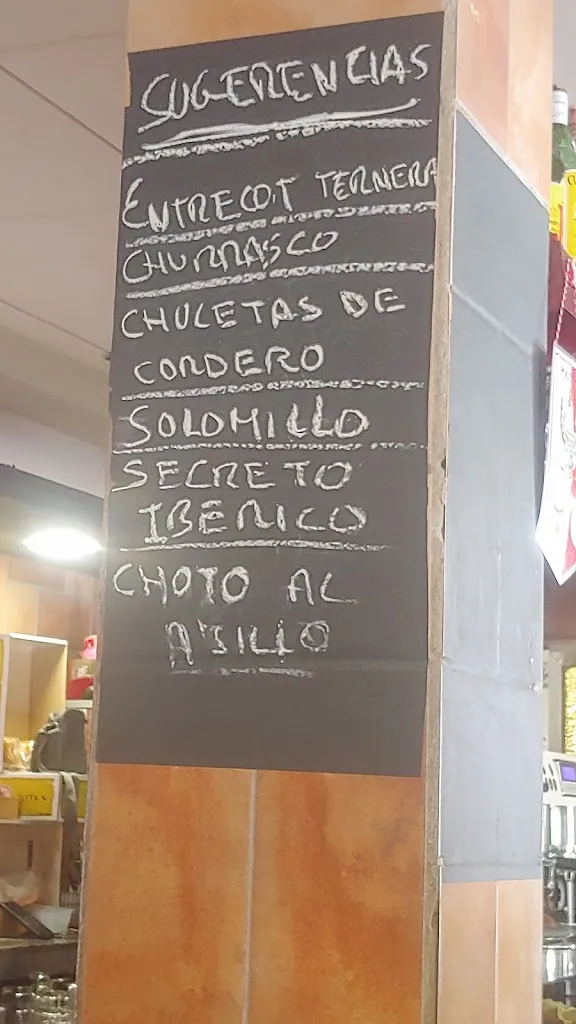 SUGERENCIAS
ENTRECOT TERNERA
CHURRASCO
CHULETAS DE
CORDERO
SOLOMILLO
SECRETO
IBERICO
CHOTO AL
AJILLO